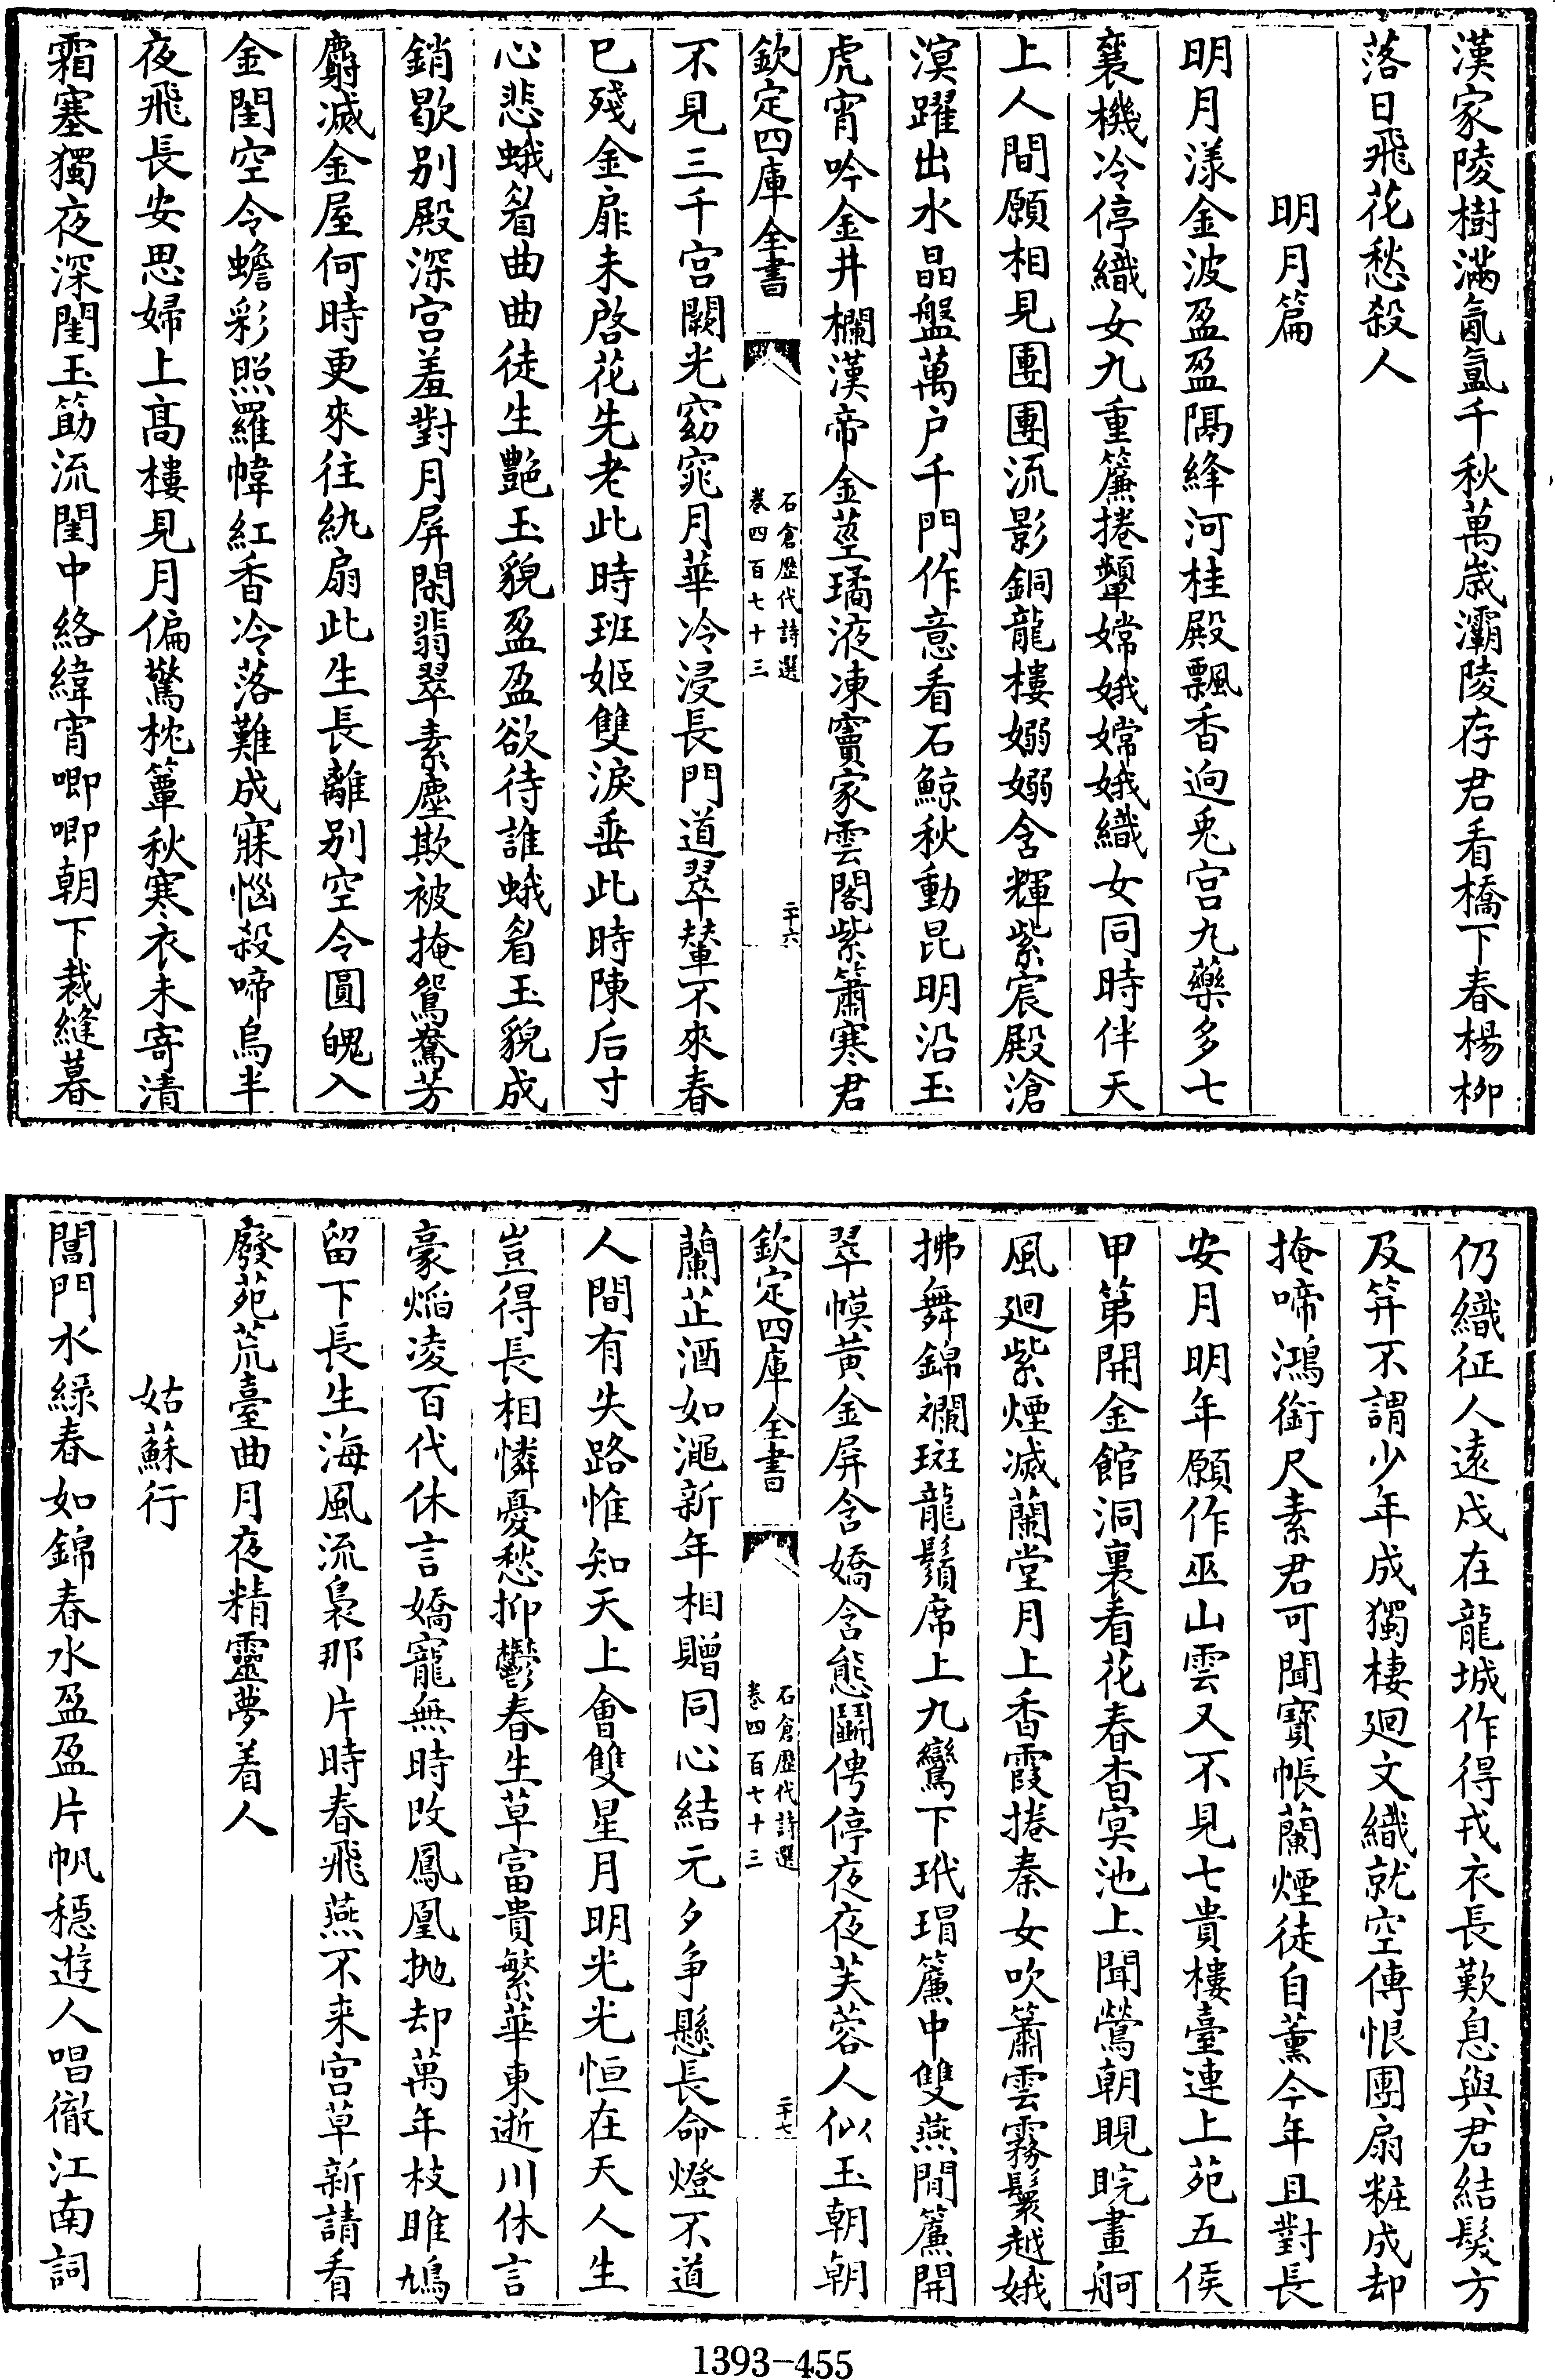 漢家陵樹滿氤氳千秋萬歲灞陵存君看橋下春楊柳
落日飛花愁殺人
明月篇
明月漾金波盈盈隔絳河桂殿飄香逈兎宫九藥多七
襄機冷停織女九重簾捲顰嫦娥嫦娥織女同時伴天
上人間願相見團團流影銅龍樓嫋嫋含輝紫宸殿滄
溟躍出水晶盤萬户千門作意看石鯨秋動昆明沿玉
虎宵吟金井欄漢帝金莖璚液凍竇家雲閣紫簫寒君
欽定四庫全書
石倉歴代詩選
卷四百七十三
二十六
不見三千宫闕光窈窕月華冷浸長門道翠輦不來春
已殘金扉未啓花先老此時班姬雙淚垂此時陳后寸
心悲蛾眉曲曲徒生艷玉貌盈盈欲待誰蛾眉玉貌成
銷歇别殿深宫羞對月屏閑翡翠素塵欺被掩鴛鴦芳
麝滅金屋何時更來往紈扇此生長離别空令圓魄入
金閨空令蟾彩照羅幃紅香冷落難成寐惱殺啼烏半
夜飛長安思婦上髙樓見月偏驚枕簟秋寒衣未寄清
霜塞獨夜深閨玉筯流閨中絡緯宵唧唧朝下裁縫暮
仍織征人遠戍在龍城作得戎衣長歎息與君結髮方
及笄不謂少年成獨棲廻文織就空傳恨團扇粧成却
掩啼鴻銜尺素君可聞寳帳蘭煙徒自薰今年且對長
安月明年願作巫山雲又不見七貴樓臺連上苑五侯
甲第開金館洞裏看花春杳冥池上聞鶯朝睍睆畫舸
風廻紫煙滅蘭堂月上香霞捲秦女吹簫雲霧鬟越娥
拂舞錦斕斑龍鬚席上九鸞下玳瑁簾中雙燕閒簾開
翠幙黄金屏含嬌含態鬭俜停夜夜芙蓉人似玉朝朝
欽定四庫全書
石倉歴代詩選
卷四百七十三
二十七
蘭芷酒如澠新年相贈同心結元夕争懸長命燈不道
人間有失路惟知天上會雙星月明光光恒在天人生
豈得長相憐憂愁抑鬱春生草富貴繁華東逝川休言
豪焰凌百代休言嬌寵無時改鳳凰抛却萬年枝雎鳩
留下長生海風流裊那片時春飛燕不来宫草新請看
廢苑荒臺曲月夜精靈夢着人
姑蘇行
閶門水緑春如錦春水盈盈片帆穏遊人唱徹江南詞
1393-455